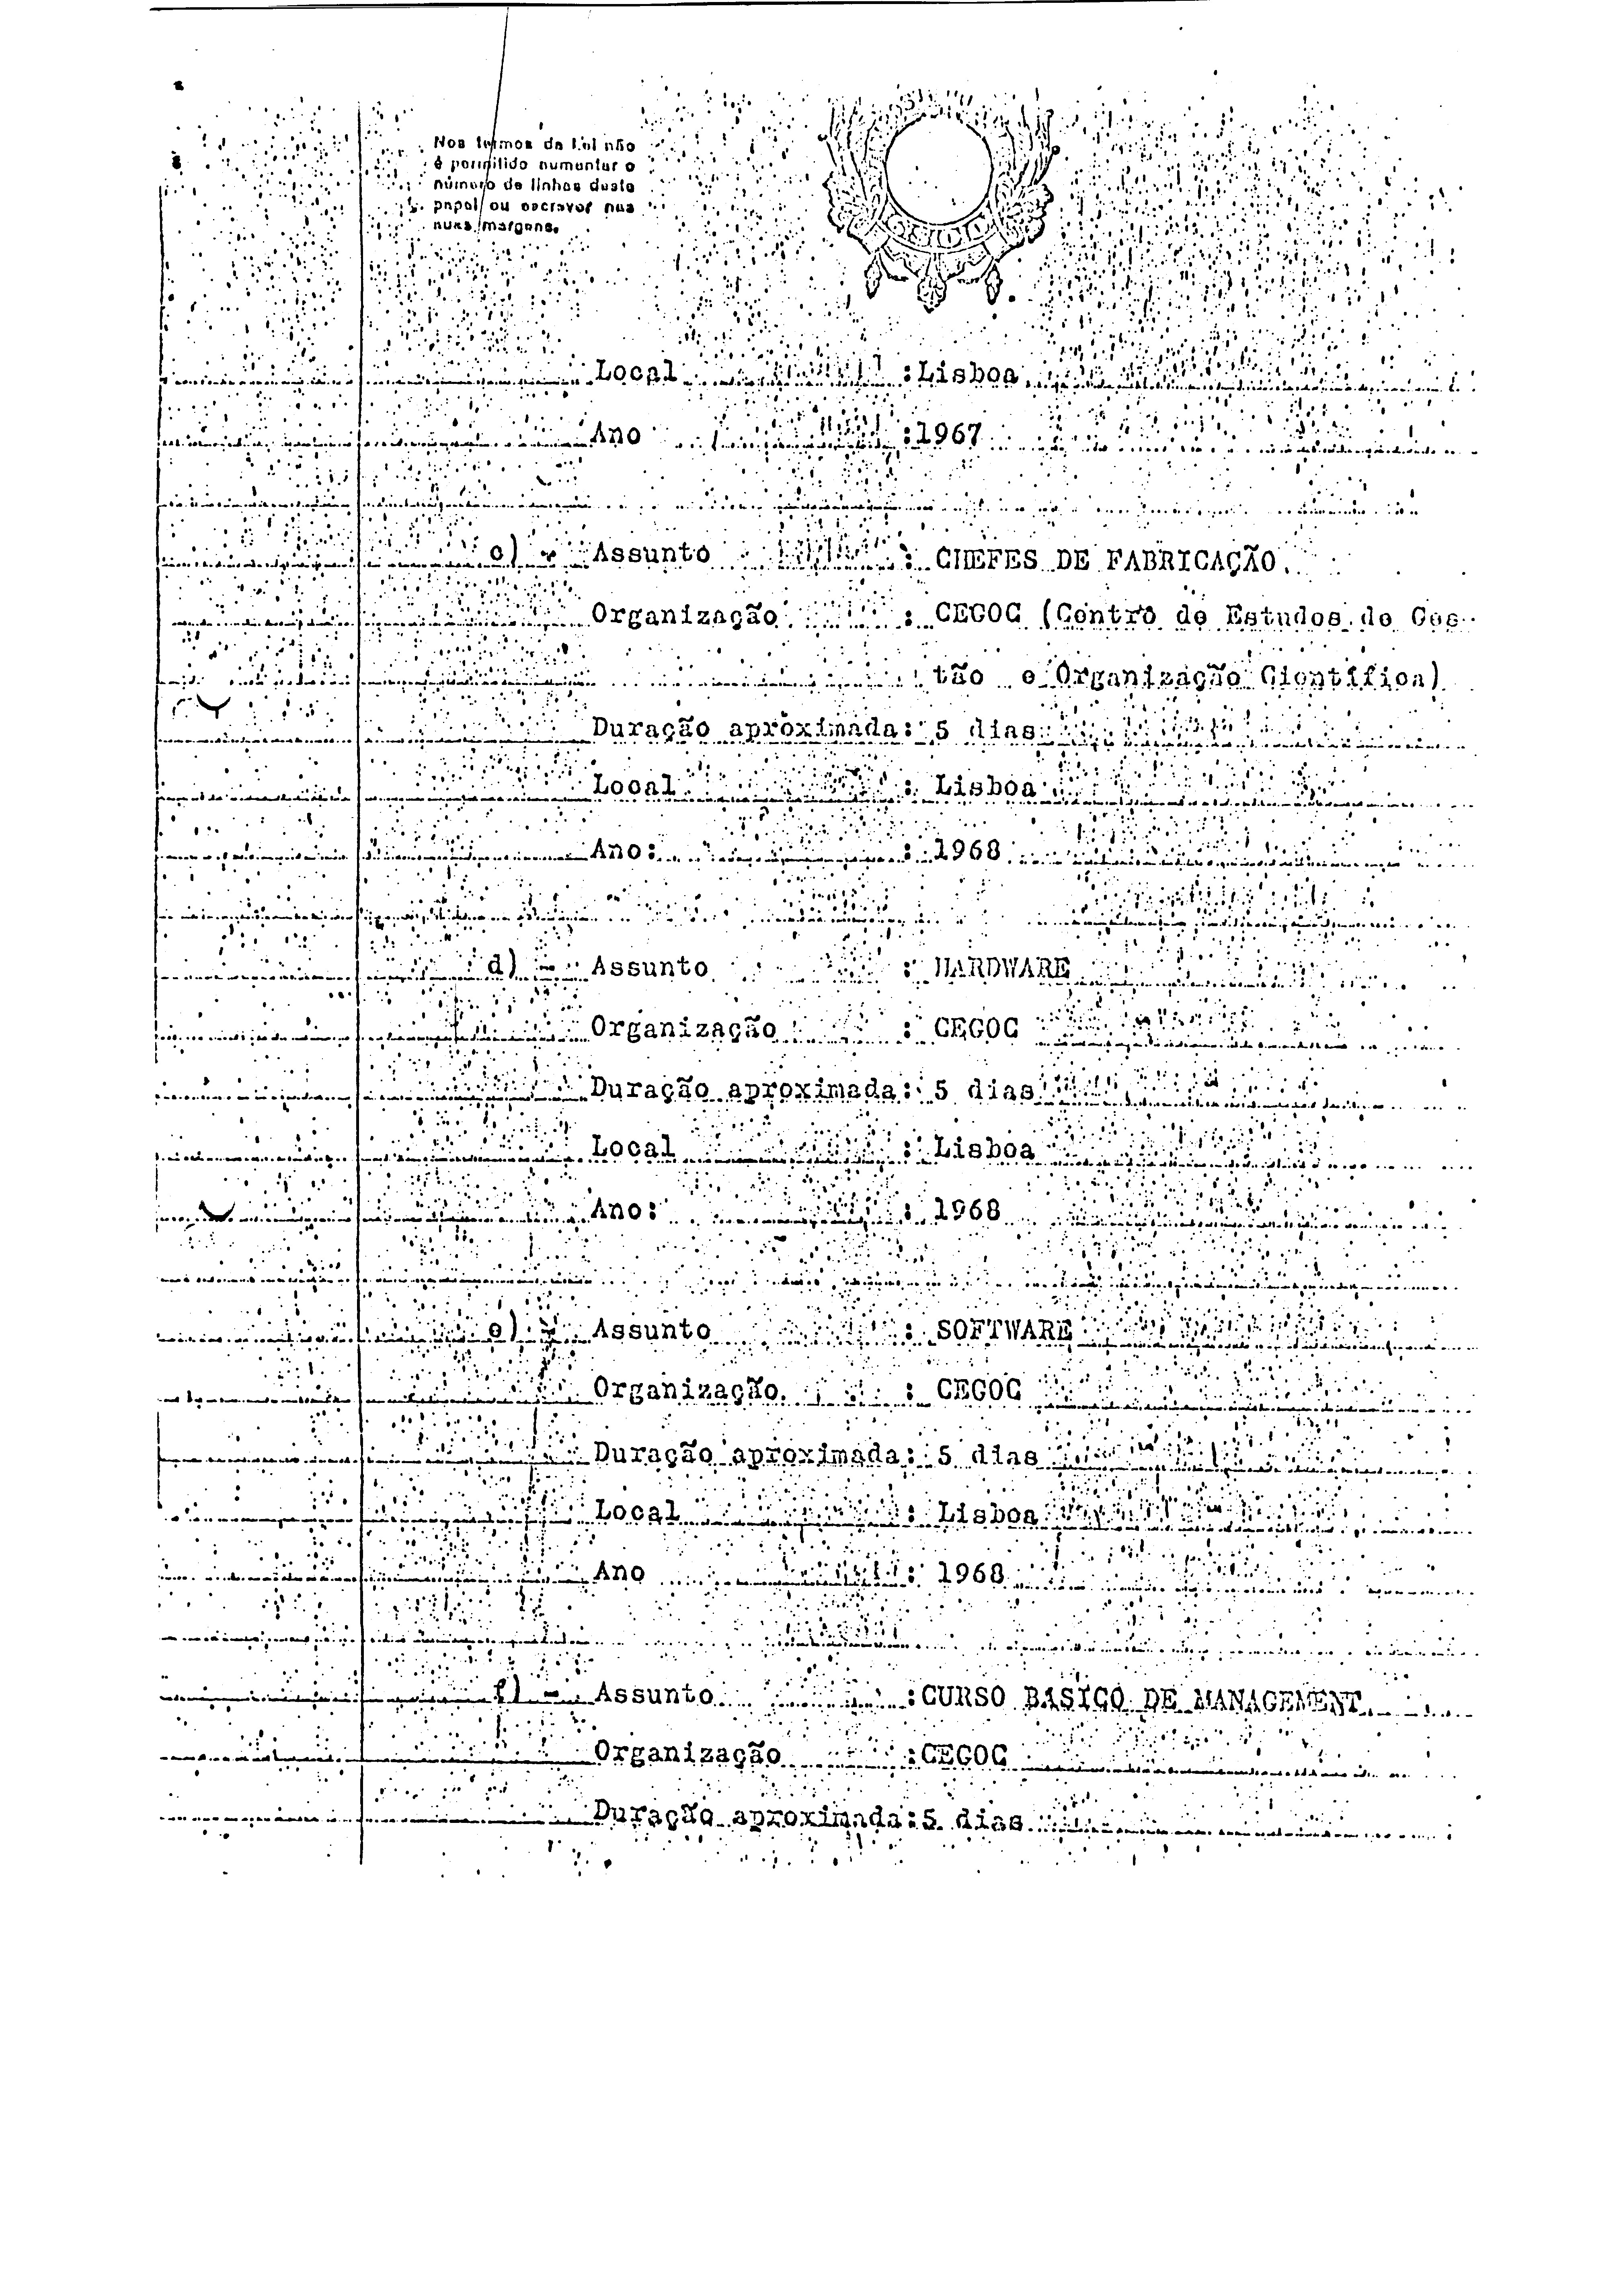 Nos termos da Lei não
é permitido aumentar o
número de linhas deste
papel ou escrever nas
suas margens.
Local :Lisboa
Ano :1967
c) - Assunto : CHEFES DE FABRICAÇÃO
Organização : CEGOC (Centro de Estudos de Ges-
tão e Organização Científica)
Duração aproximada: 5 dias
Local : Lisboa
Ano: : 1968
d) - Assunto : HARDWARE
Organização : CEGOC
Duração aproximada: 5 dias
Local : Lisboa
Ano: : 1968
e) - Assunto : SOFTWARE
Organização : CEGOC
Duração aproximada: 5 dias
Local : Lisboa
Ano : 1968
f) - Assunto :CURSO BASICO DE MANAGEMENT
Organização :CEGOC
Duração aproximada:5 dias